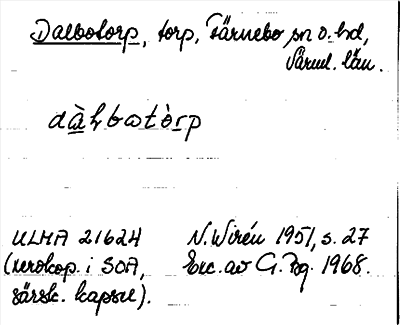 Dalbotorp, torp, Färnebo sn o. hd,
Värml. län.
dàḷbωtòrp
ULMA 21624 N. Wirén 1951, s. 27
(xerokop. i SOA, Exc. av G. Bg. 1968.
särsk. kapsel).